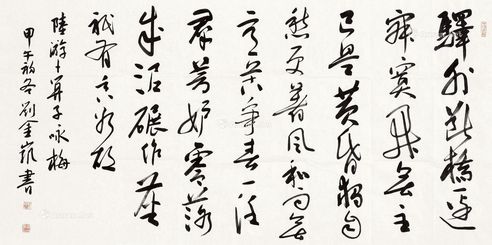 驛外斷橋邊
寂寞開無主
已是黄昏獨自
愁更著風和雨無
意苦爭春一任
羣芳妒零落
成泥碾作塵
祇有香如故
陸游卜算子咏梅
甲午初冬劉金凱書